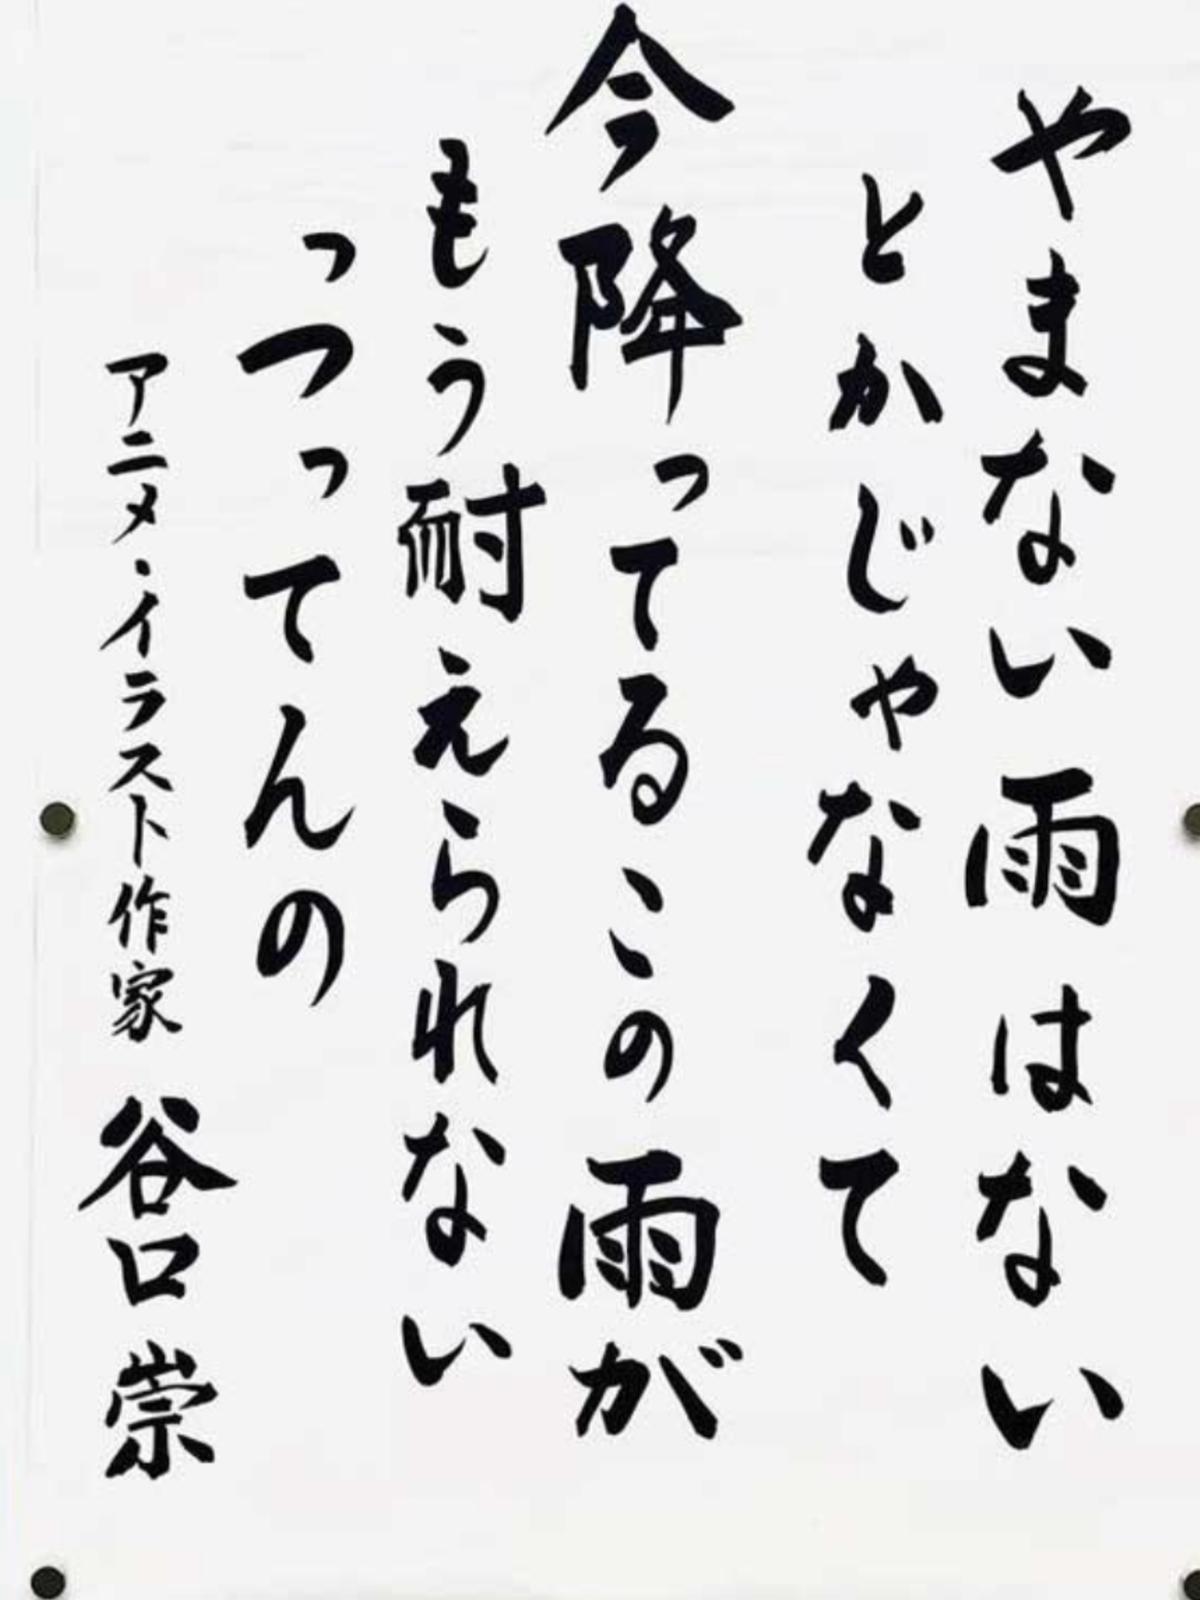 やまない雨はない
とかじゃなくて
今降ってるこの雨が
もう耐えられない
っつってんの
アニメ・イラスト作家 谷口 崇